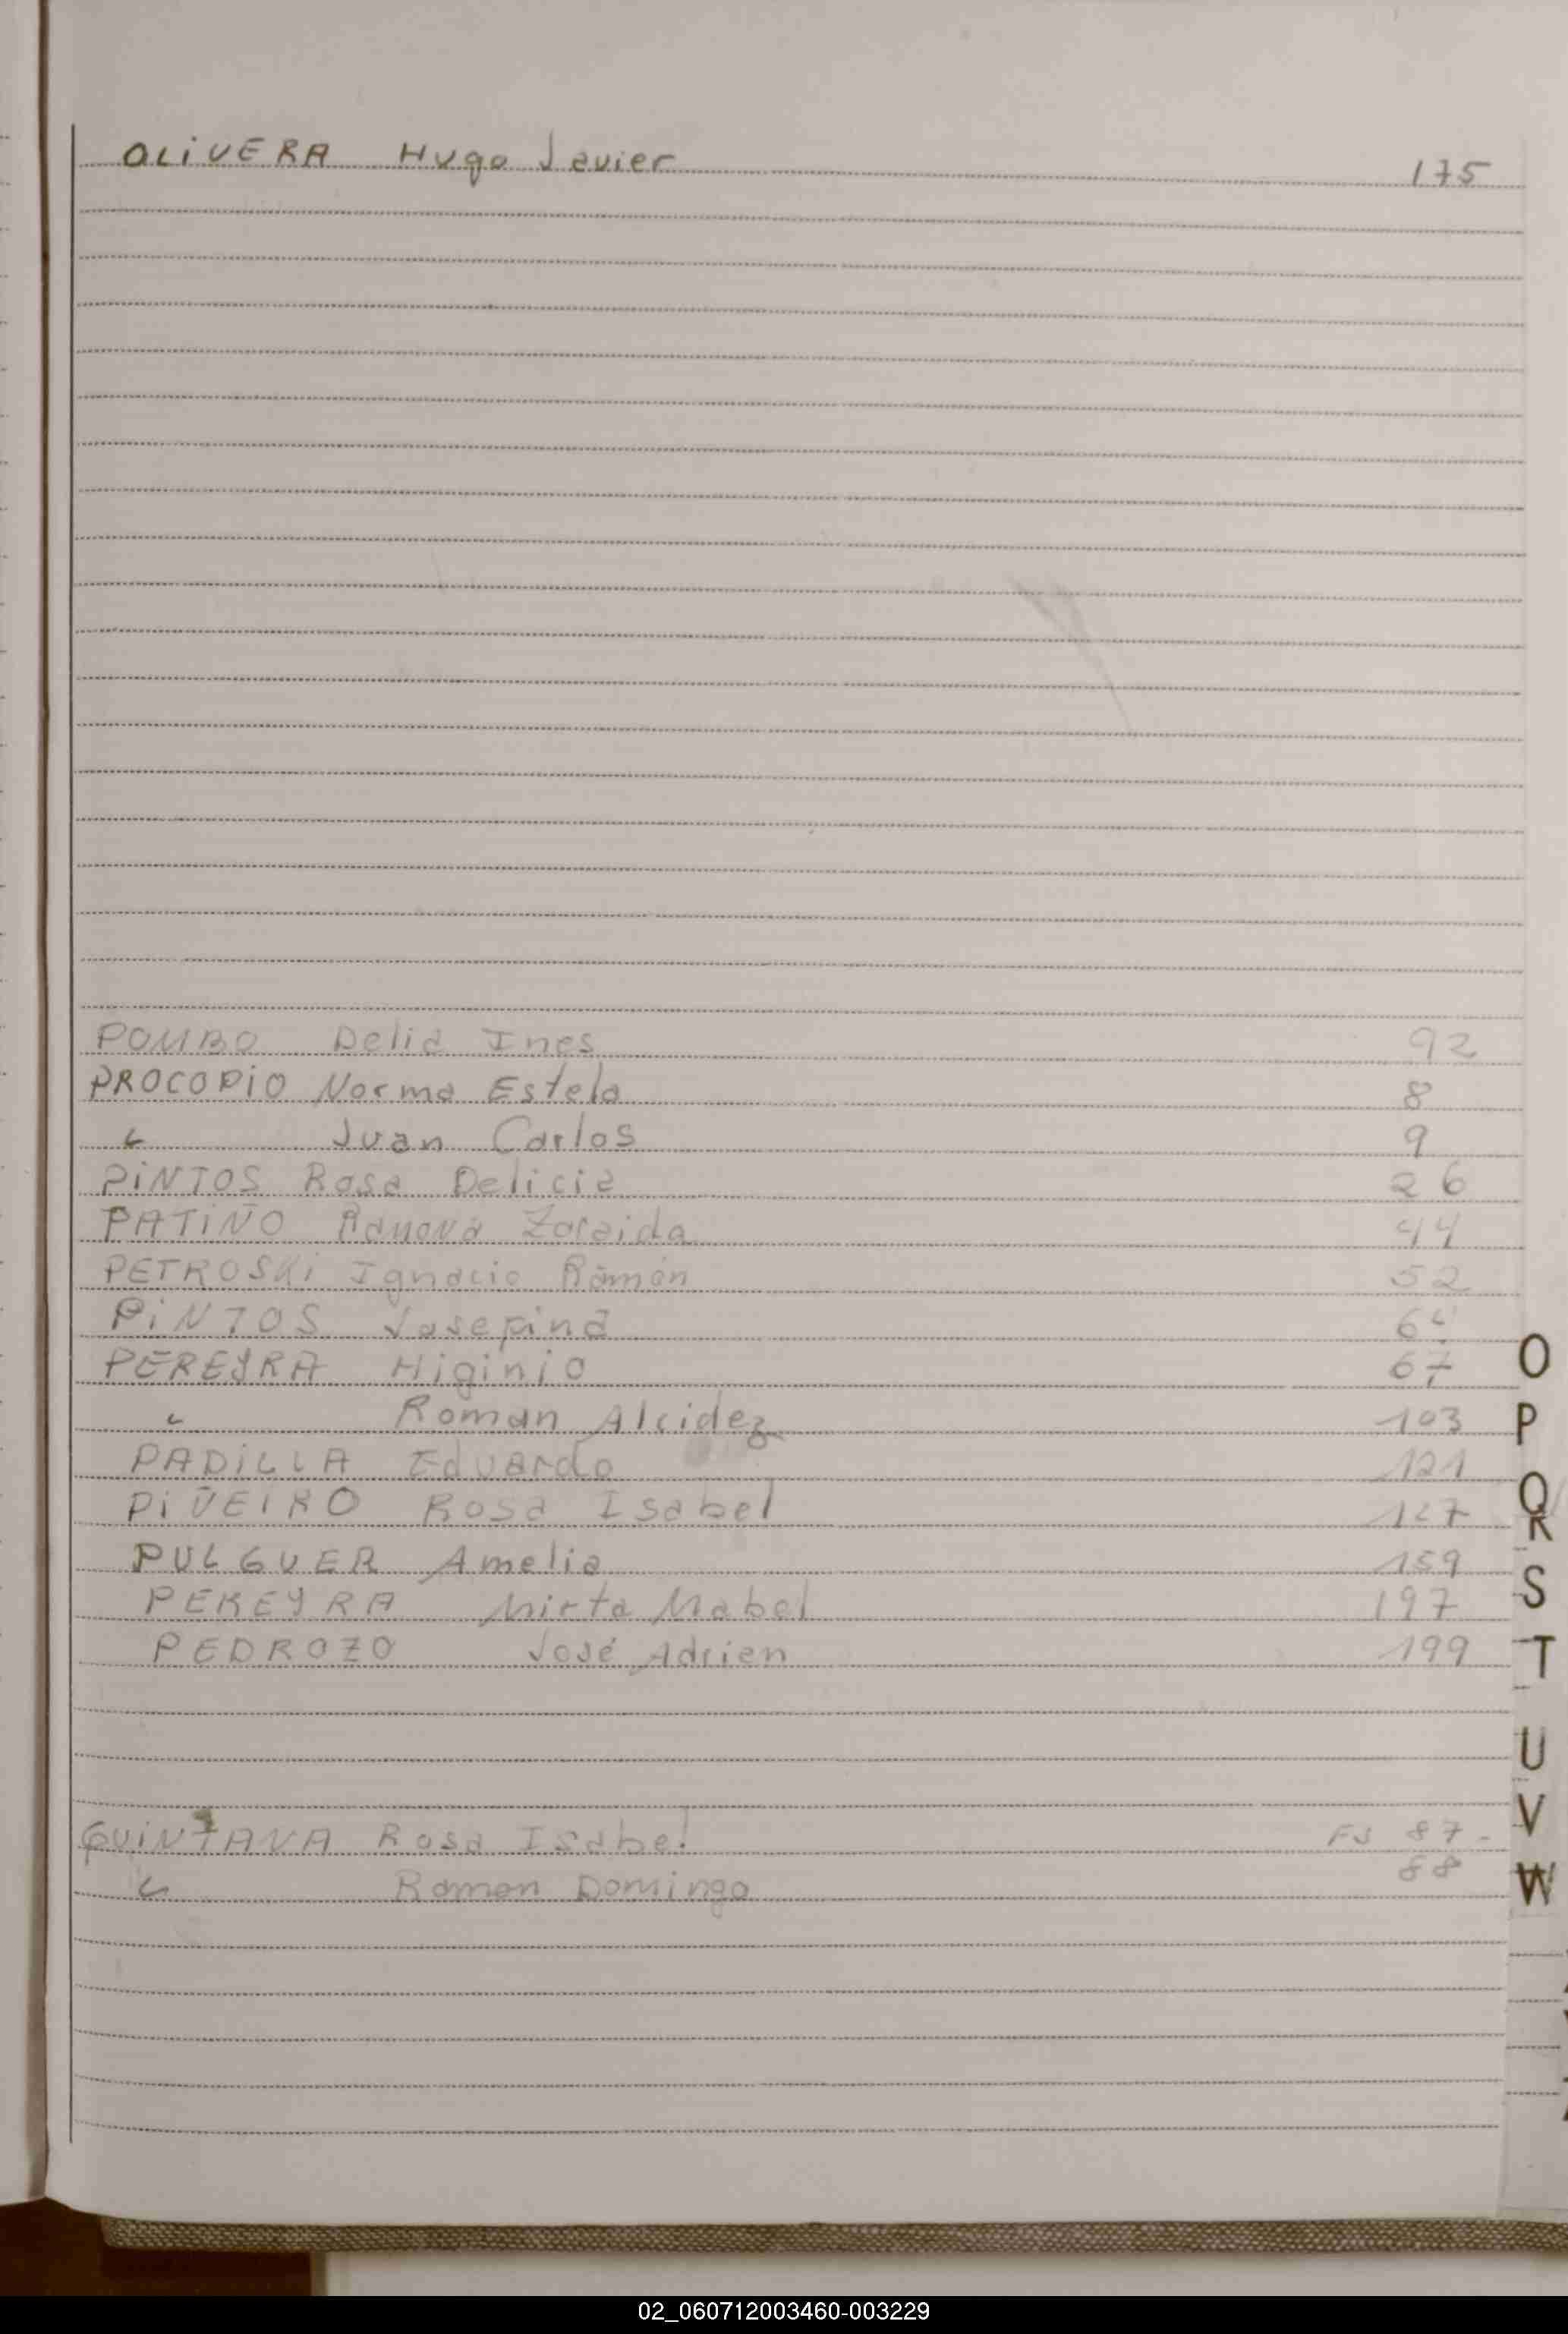 OLiVERA Hugo Javier 175
POMBO Delia Ines 92
PROCOPiO Norma Estela 8
" Juan Carlos 9
PiNTOS Rosa Delicia 26
PATiÑO Zoraida 44
PETROSKi Ignacio Ramón 52
PiNTOS Josefina
PEREyRA Higinio 67
" Roman Alcidez 103
PADiLLA Eduardo 121
PiÑEIRO Rosa Isabel 127
PULGUER Amelia 159
PEREyRA Mirta Mabel 197
PEDROZO José Adrien 199
QUiNTANA Rosa Isabel Fs 87-
" Ramon Domingo 88
O
P
Q
R
S
T
U
V
W
02_060712003460-003229